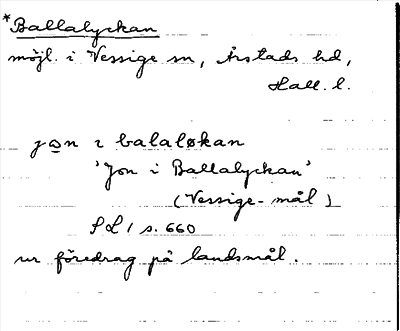 *Ballalyckan
möjl. i Vessige sn, Årstads hd,
Hall. l.
jon ɪ balaløkan
'Jon i Ballalyckan'
(Vessige-mål)
SL 1 s. 660
ur föredrag på landsmål.